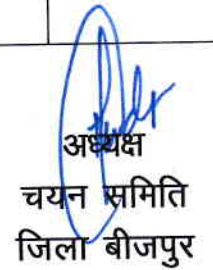 अध्यक्ष
चयन समिति
जिला बीजपुर